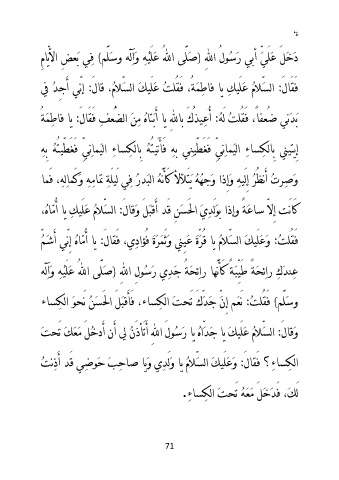 دَخَلَ عَلَيَّ أبي رَسُولُ اللهِ (صلّى اللهُ عَلَيهِ وَآلِه وسَلّم) فِي بَعضِ الأيّامِ
فَقَالَ: السّلامُ عَلَيكِ يا فاطِمَةُ، فَقُلتُ عَلَيكَ السّلامُ، قالَ: إنّي أجِدُ في
بَدَني ضُعفاً، فَقُلتُ لَهُ: أُعِيذُكَ باللهِ يا أبَتاهُ مِنَ الضُّعفِ فَقَالَ: يا فاطِمَةُ
إيتيني بِالكِساءِ اليَمانيّ فَغَطِّيني بهِ فَأتَيتُهُ بِالكِساءِ اليَمانيّ فَغَطّيتُهُ بِهِ
وَصِرتُ أنظُرُ إلَيهِ وَإذا وَجهُهُ يَتَلَألَأُ كَأنّهُ البَدرُ فِي لَيلَةِ تَمامِهِ وَكَمالِهِ، فَما
كانَت إلاّ ساعَةً وإذا بِوَلَدِيَ الحَسَنِ قَد أقبَلَ وَقالَ: السّلامُ عَلَيكِ يا أُمّاهُ،
فَقُلتُ: وَعَلَيكَ السّلامُ يا قُرّةَ عَيني وَثَمَرَةَ فُؤادِي، فَقالَ: يا أُمّاهُ إنّي أشَمُّ
عِندَكِ رائِحَةً طَيِّبَةً كَأنّها رائِحَةُ جَدِي رَسُولِ اللهِ (صلّى اللهُ عَلَيهِ وَآلِه
وسلّم) فَقُلتُ: نَعَم إنّ جَدّكَ تَحتَ الكِساء، فَأقبَلَ الحَسَنُ نَحوَ الكِساء
وَقالَ: السّلامُ عَلَيكَ يا جَدّاهُ يا رَسُولَ اللهِ أتَأذَنُ لي أن أدخُلَ مَعَكَ تَحتَ
الكِساءِ؟ فَقالَ: وَعَلَيكَ السّلامُ يا وَلَدِي وَيا صاحِبَ حَوضِي قَد أذِنتُ
لَكَ، فَدَخَلَ مَعَهُ تَحتَ الكِساءِ.
71